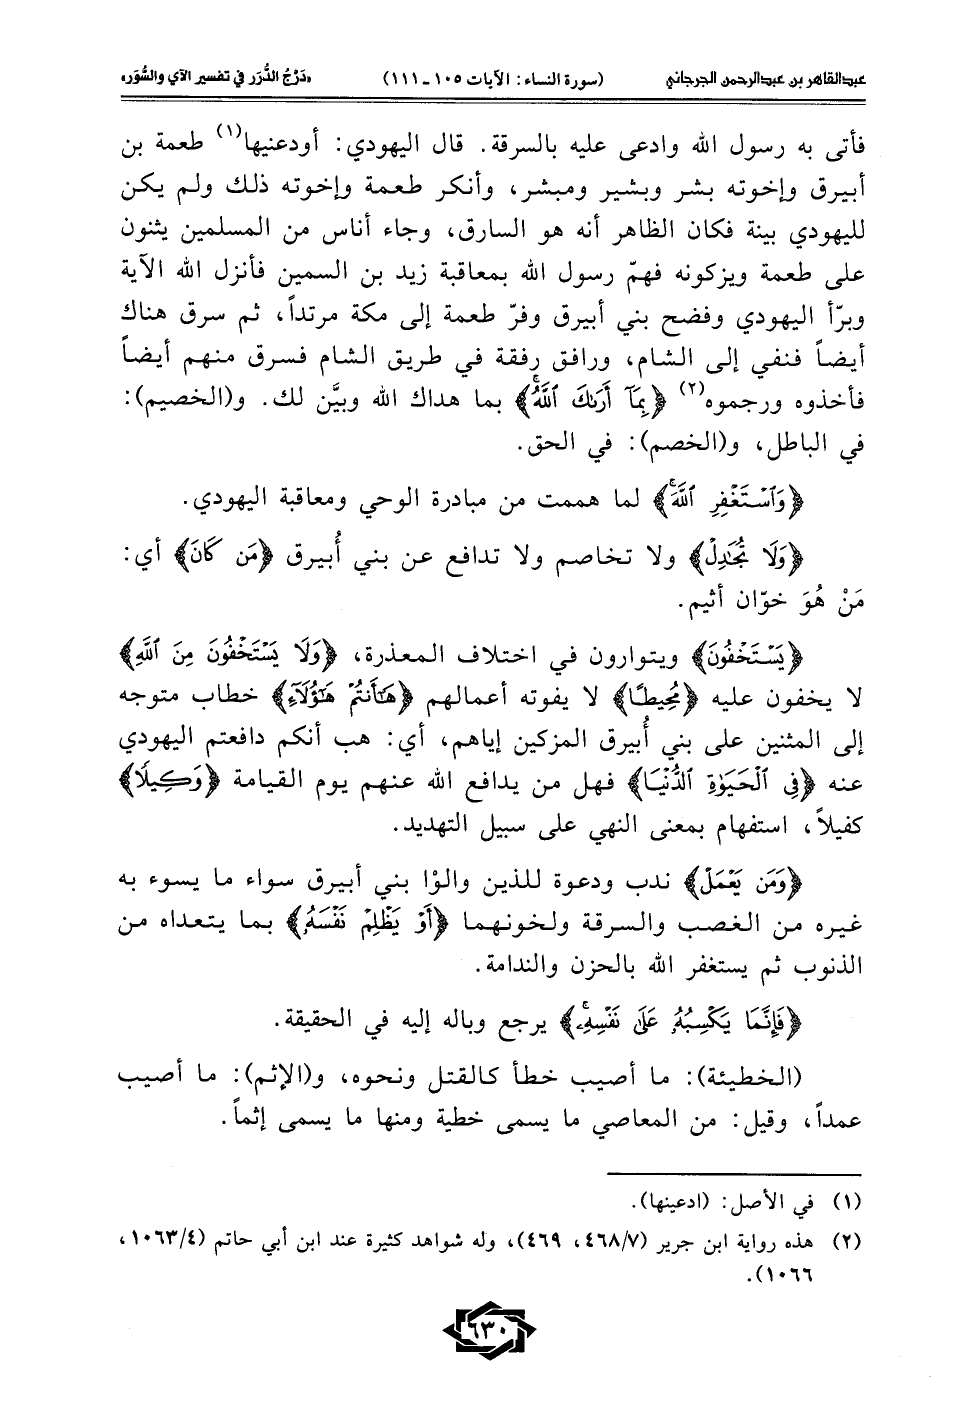 عبدالقاهر بن عبدالرحمن الجرجاني (سورة النساء: الآيات ١٠٥ ـ ١١١) «دَرْجُ الدُّرَر في تفسير الآي والسُّوَر»
فأتى به رسول الله وادعى عليه بالسرقة. قال اليهودي: أودعنيها(١) طعمة بن
أبيرق وإخوته بشر وبشير ومبشر، وأنكر طعمة وإخوته ذلك ولم يكن
لليهودي بينة فكان الظاهر أنه هو السارق، وجاء أناس من المسلمين يثنون
على طعمة ويزكونه فهمّ رسول الله بمعاقبة زيد بن السمين فأنزل الله الآية
وبرّأ اليهودي وفضح بني أبيرق وفرّ طعمة إلى مكة مرتداً، ثم سرق هناك
أيضاً فنفي إلى الشام، ورافق رفقة في طريق الشام فسرق منهم أيضاً
فأخذوه ورجموه(٢) ﴿بِمَآ أَرَىٰكَ ٱللَّهُۚ﴾ بما هداك الله وبيَّن لك. و(الخصيم):
في الباطل، و(الخصم): في الحق.
﴿وَٱسْتَغْفِرِ ٱللَّهَۖ﴾ لما هممت من مبادرة الوحي ومعاقبة اليهودي.
﴿وَلَا تُجَٰدِلْ﴾ ولا تخاصم ولا تدافع عن بني أُبيرق ﴿مَن كَانَ﴾ أي:
مَنْ هُوَ خوّان أثيم.
﴿يَسْتَخْفُونَ﴾ ويتوارون في اختلاف المعذرة، ﴿وَلَا يَسْتَخْفُونَ مِنَ ٱللَّهِ﴾
لا يخفون عليه ﴿مُحِيطًا﴾ لا يفوته أعمالهم ﴿هَٰٓأَنتُمْ هَٰٓؤُلَآءِ﴾ خطاب متوجه
إلى المثنين على بني أُبيرق المزكين إياهم، أي: هب أنكم دافعتم اليهودي
عنه ﴿فِى ٱلْحَيَوٰةِ ٱلدُّنْيَا﴾ فهل من يدافع الله عنهم يوم القيامة ﴿وَكِيلًا﴾
كفيلاً، استفهام بمعنى النهي على سبيل التهديد.
﴿وَمَن يَعْمَلْ﴾ ندب ودعوة للذين والوْا بني أبيرق سواء ما يسوء به
غيره من الغصب والسرقة ولخونهما ﴿أَوْ يَظْلِمْ نَفْسَهُۥ﴾ بما يتعداه من
الذنوب ثم يستغفر الله بالحزن والندامة.
﴿فَإِنَّمَا يَكْسِبُهُۥ عَلَىٰ نَفْسِهِۦۚ﴾ يرجع وباله إليه في الحقيقة.
(الخطيئة): ما أصيب خطأ كالقتل ونحوه، و(الإثم): ما أصيب
عمداً، وقيل: من المعاصي ما يسمى خطية ومنها ما يسمى إثماً.
(١) في الأصل: (ادعينها).
(٢) هذه رواية ابن جرير (٤٦٨/٧، ٤٦٩)، وله شواهد كثيرة عند ابن أبي حاتم (١٠٦٣/٤،
١٠٦٦).
٦٣٠